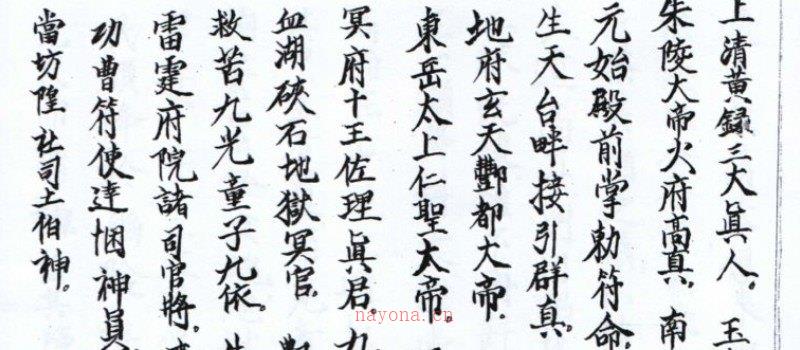 上清黃籙三大眞人。玉
朱陵大帝火府高真。南
元始殿前掌勅符命
生天台畔接引群真
地府玄天酆都大帝。
東岳太上仁聖大帝。
冥府十王佐理眞君。九
血湖硤石地獄冥官。
救苦九光童子九依。
雷霆府院諸司官將。
功曹符使達悃神員
當坊隍社司土伯神。
nayona.cn